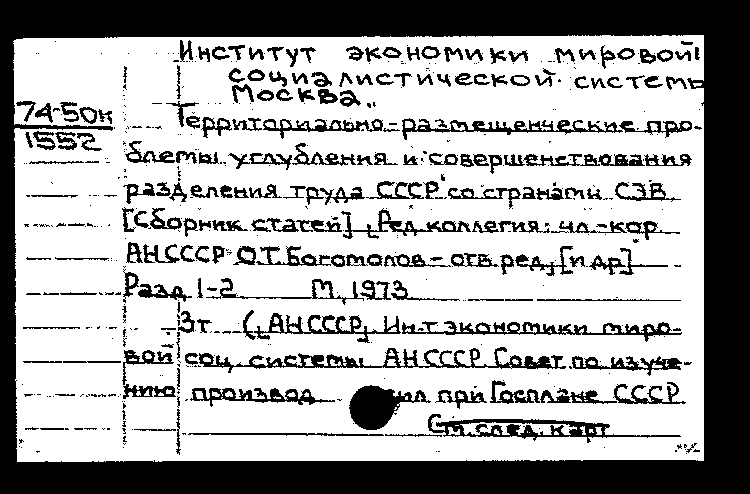 Институт экономики мировой
социалистической системы
Москва.
74-50к
1552
Территориально-размещенческие про-
блемы углубления и совершенствования
разделения труда СССР со странами СЭВ.
[Сборник статей]. [Ред. коллегия: чл.-кор.
АН СССР О.Т. Богомолов - отв. ред., [и др.]
Разд. 1-2 М., 1973.
3т ([АН СССР]. Ин-т экономики миро-
вой соц. системы АН СССР. Совет по изуче-
нию производ. сил при Госплане СССР
См. след. карт